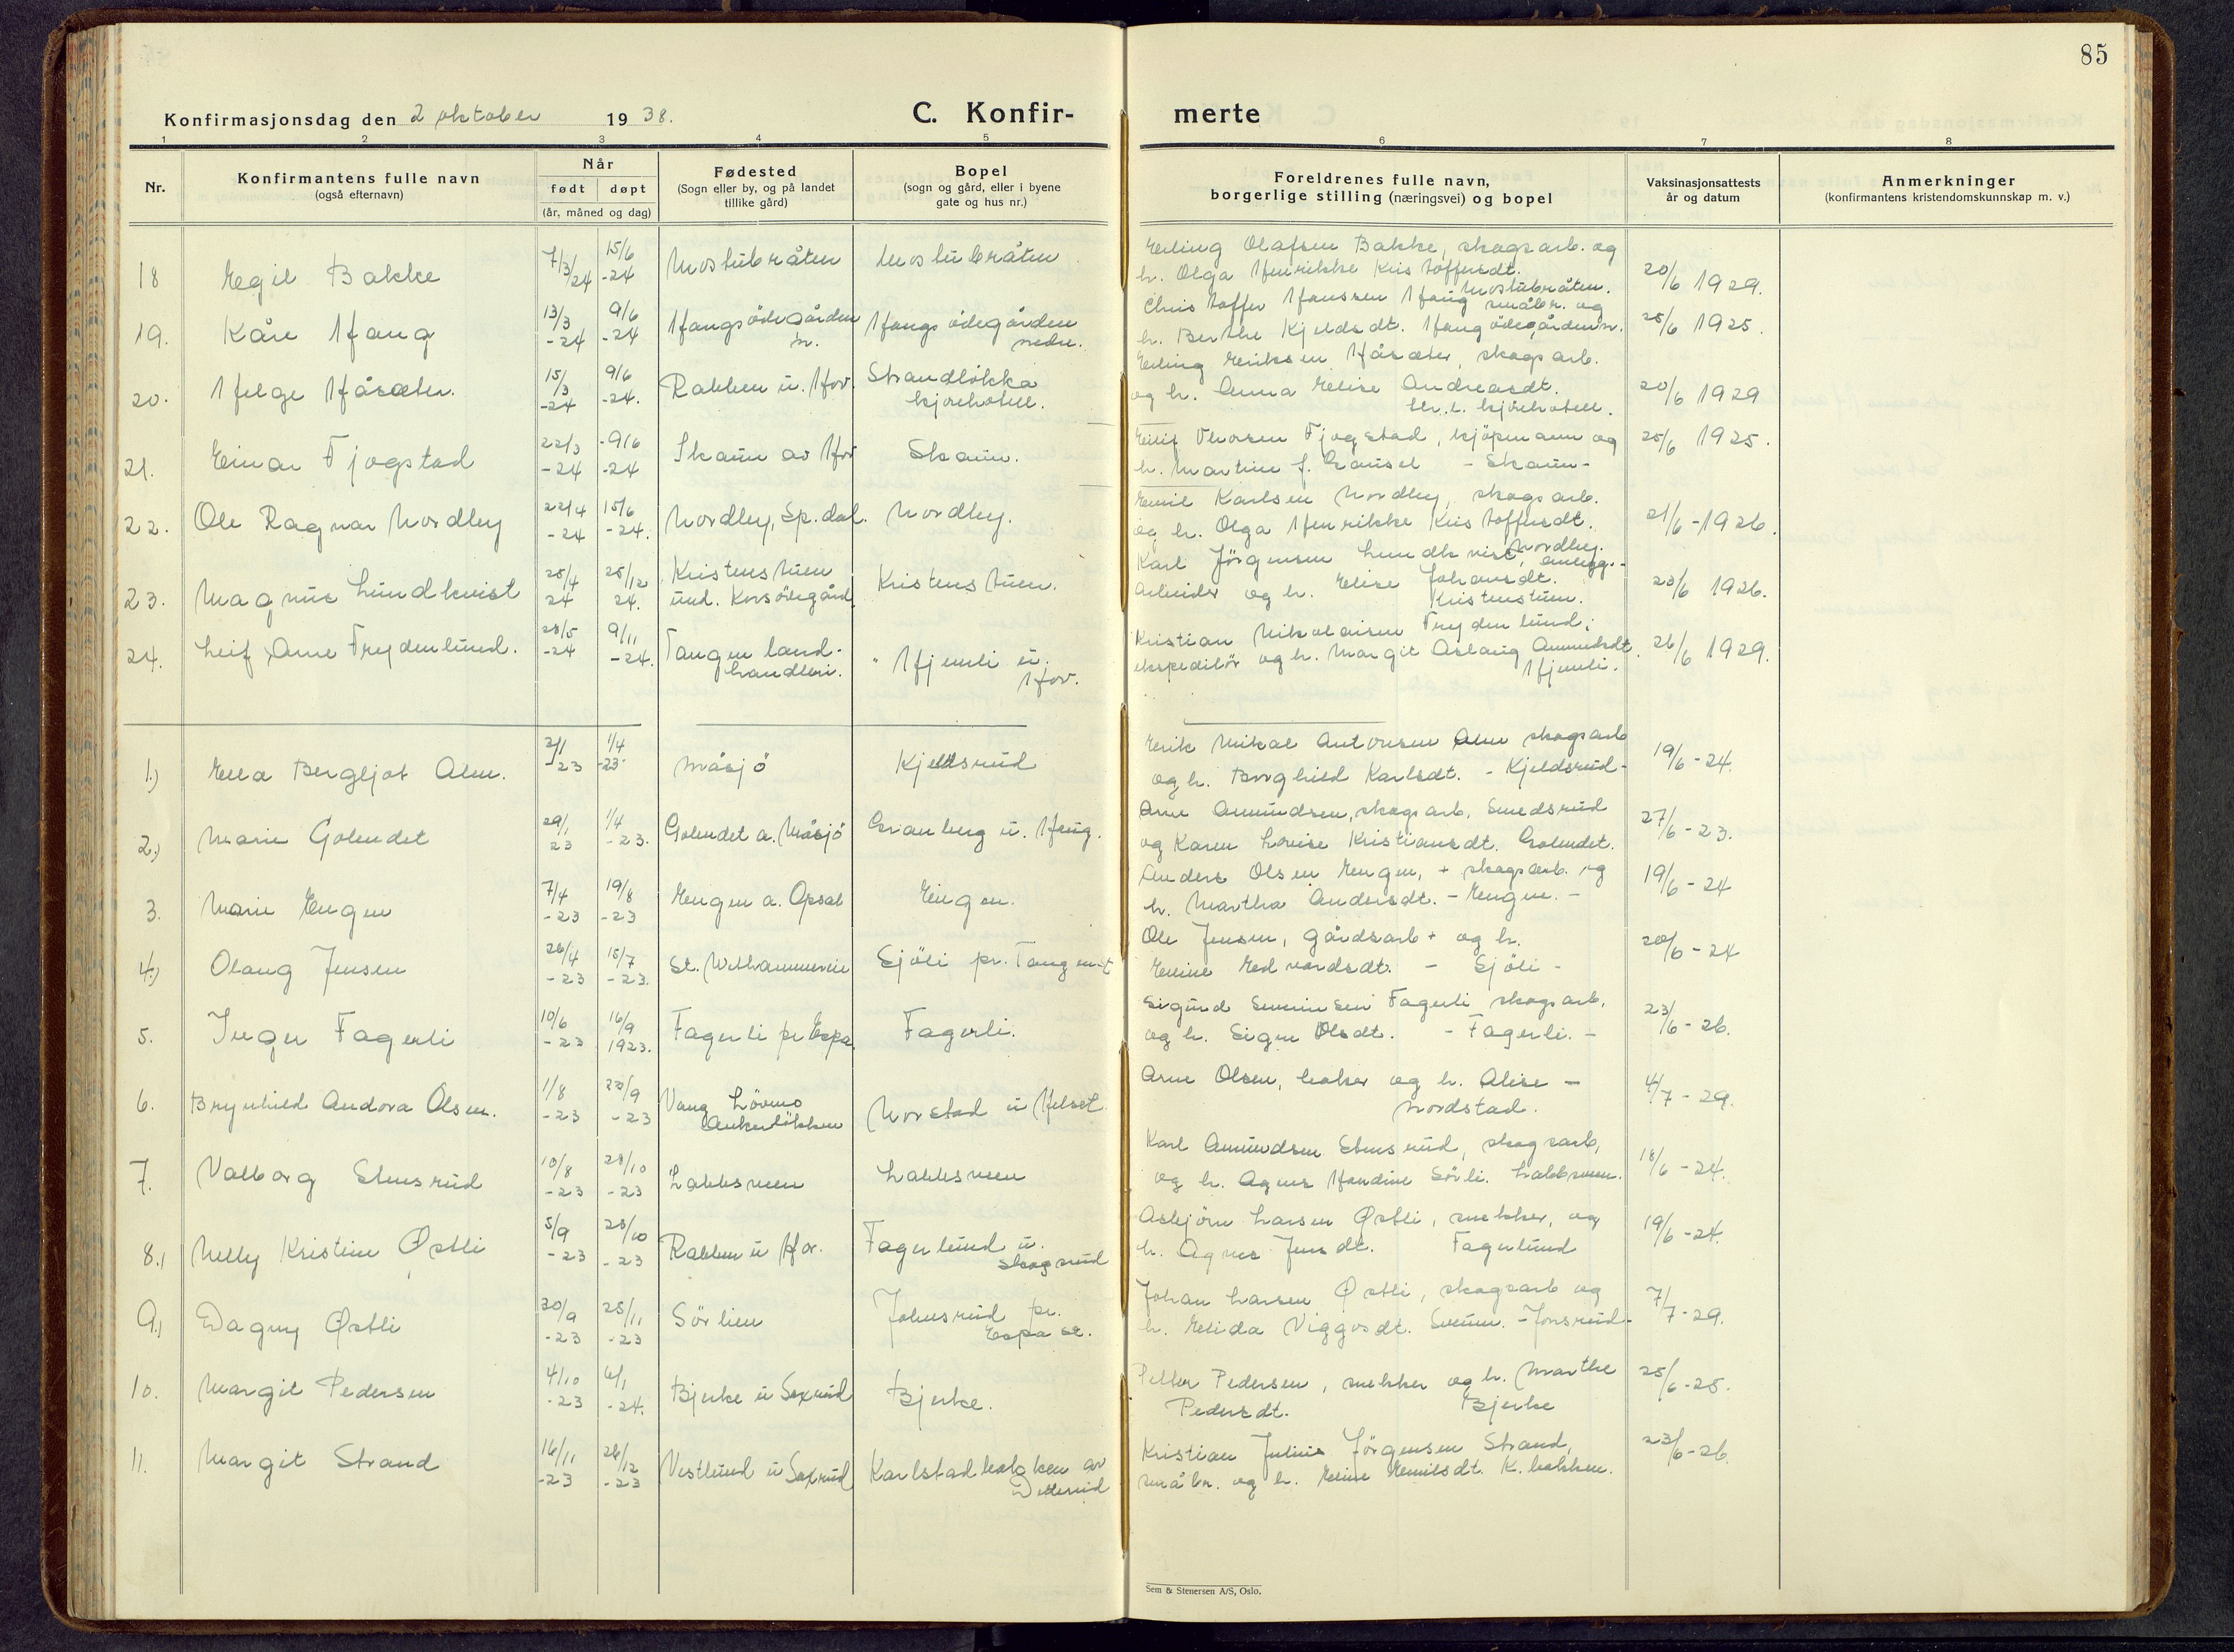 85
Konfirmasjonsdag den 2 oktober 1938.
C. Konfir-
merte
1 2 3 4 5 6 7 8
Nr.
Konfirmantens fulle navn
(også efternavn)
Når
født døpt
(år, måned og dag)
Fødested
(Sogn eller by, og på landet
tillike gård)
Bopel
(sogn og gård, eller i byene
gate og hus nr.)
Foreldrenes fulle navn,
borgerlige stilling (næringsvei) og bopel
Vaksinasjonsattests
år og datum
Anmerkninger
(konfirmantens kristendomskunnskap m. v.)
18 Egil Bakke 7/3/24 15/6 -24 Mostubråten Mostubråten
Erling Olafsen Bakke, skogsarb. og
h. Olga Henrikke Kristoffersdt.
Mostubråten.
20/6 1929.
19. Kåre Haug 13/3 -24 9/6 -24 Haugsödegården n. Haugsödegården
nedre.
Christoffer Hansen Haug småbr. og
h. Berthe Kjeldsdt. Haugödegården n.
25/6 1925.
20. Helge Håsæter. 15/3 -24 9/6 -24. Rakken u. Hov. Strandlökka
kjörehotell.
Erling Eriksen Håsæter, skogsarb.
og h. Anna Elise Andreasdt.
Str.l. kjörehotell.
20/6 1929
21. Einar Fjogstad 22/3 -24 -9/6 -24 Skaun av Hov Skaun.
Eilif Thorsen Fjogstad, kjöpmann og
h. Martine f. Gausel - Skaun-
25/6 1925.
22. Ole Ragnar Nordby 22/4 -24 15/6 -24. Nordby, Sp.dal. Nordby.
Emil Karlsen Nordby, skogsarb.
og h. Olga Henrikke Kristoffersdt.
Nordby.
21/6 -1926.
23. Magnus Lundkvist 25/4 24 25/12 24. Kristenstuen
und. Korsödegård Kristenstuen.
Karl Jörgensen Lundkvist, anlegg.-
arbeider og h. Elise Johansdt.
Kristenstuen.
23/6 1926.
24. Leif Arne Frydenlund. 28/5 -24 9/11 -24. Tangen land-
handleri. Hjemli u.
Hov.
Kristian Nikolaisen Frydenlund,
ekspeditör og h. Margit Aslaug Amundsdt.
Hjemli.
26/6 1929.
1.) Ella Bergljot Alm. 3/1 23 1/4 -23 Måsjö Kjeldsrud
Erik Mikal Antonsen Alm skogsarb
og h. Borghild Karlsdt. - Kjeldsrud-
19/6 -24.
2.) Marie Golendet 29/1 23 1/4 -23. Golendet a. Måsjö Granberg u. Haug.
Arne Amundsen, skogsarb, Smedsrud
og Karen Lovise Kristiansdt. Golendet.
27/6 -23.
3. Marie Engen 7/4 -23 19/8 -23 Engen a. Opsal Engen.
Anders Olsen Engen, + skogsarb. og
h. Martha Andersdt. - Engen. -
19/6 - 24
4.) Olaug Jensen 26/4 -23 15/7 -23. Sjöli pr. Tangen st
Ole Jensen, gårdsarb + og h.
Elline Edvardsdt. - Sjöli -
20/6 - 24
5. Inger Fagerli 10/6 -23 16/9 1923. Fagerli pr Espa. Fagerli.
Sigurd Fagerli skogsarb,
og h. Signe Olsdt. - Fagerli. -
23/6 - 26.
6. Brynhild Andora Olsen. 1/8 -23 23/9 -23 Vang Lövmo
Ankerlökken Norstad u Helset.
Arne Olsen, baker og h. Alise -
Nordstad.
4/7 - 29.
7. Valborg Stensrud 10/8 -23 28/10 -23 Lakksveen Lakksveen
Karl Amundsen Stensrud, skogsarb,
og h. Agnes Handine Sörli. Lakksveen.
18/6 - 24.
8.) Nelly Kristine Østli 5/9 -23 28/10 -23 Rakken u Hov. Fagerlund u.
Skogsrud
Asbjörn Larsen Østli, snekker, og
h. Agnes Jensdt. Fagerlund
19/6 - 24.
9.) Dagny Østli 30/9 -23 25/11 -23 Sörlien Johnsrud pr.
Espa st.
Johan Larsen Østli, skogsarb og
h. Elida Viggosdt. Sveum. - Jonsrud-
7/7 - 29.
10. Margit Pedersen 4/10 -23 6/1 -24. Bjerke u Saxrud Bjerke.
Petter Pedersen, snekker og h. Marthe
Pedersdt. Bjerke
25/6 -25.
11. Margit Strand 16/11 -23 26/12 -23 Vestlund u Saxrud Karlstadbakken av
Dillerud
Kristian Julius Jörgensen Strand,
småbr. og h. Eline Emilsdt. K.bakken.
23/6 -26.
Sem & Stenersen A/S, Oslo.